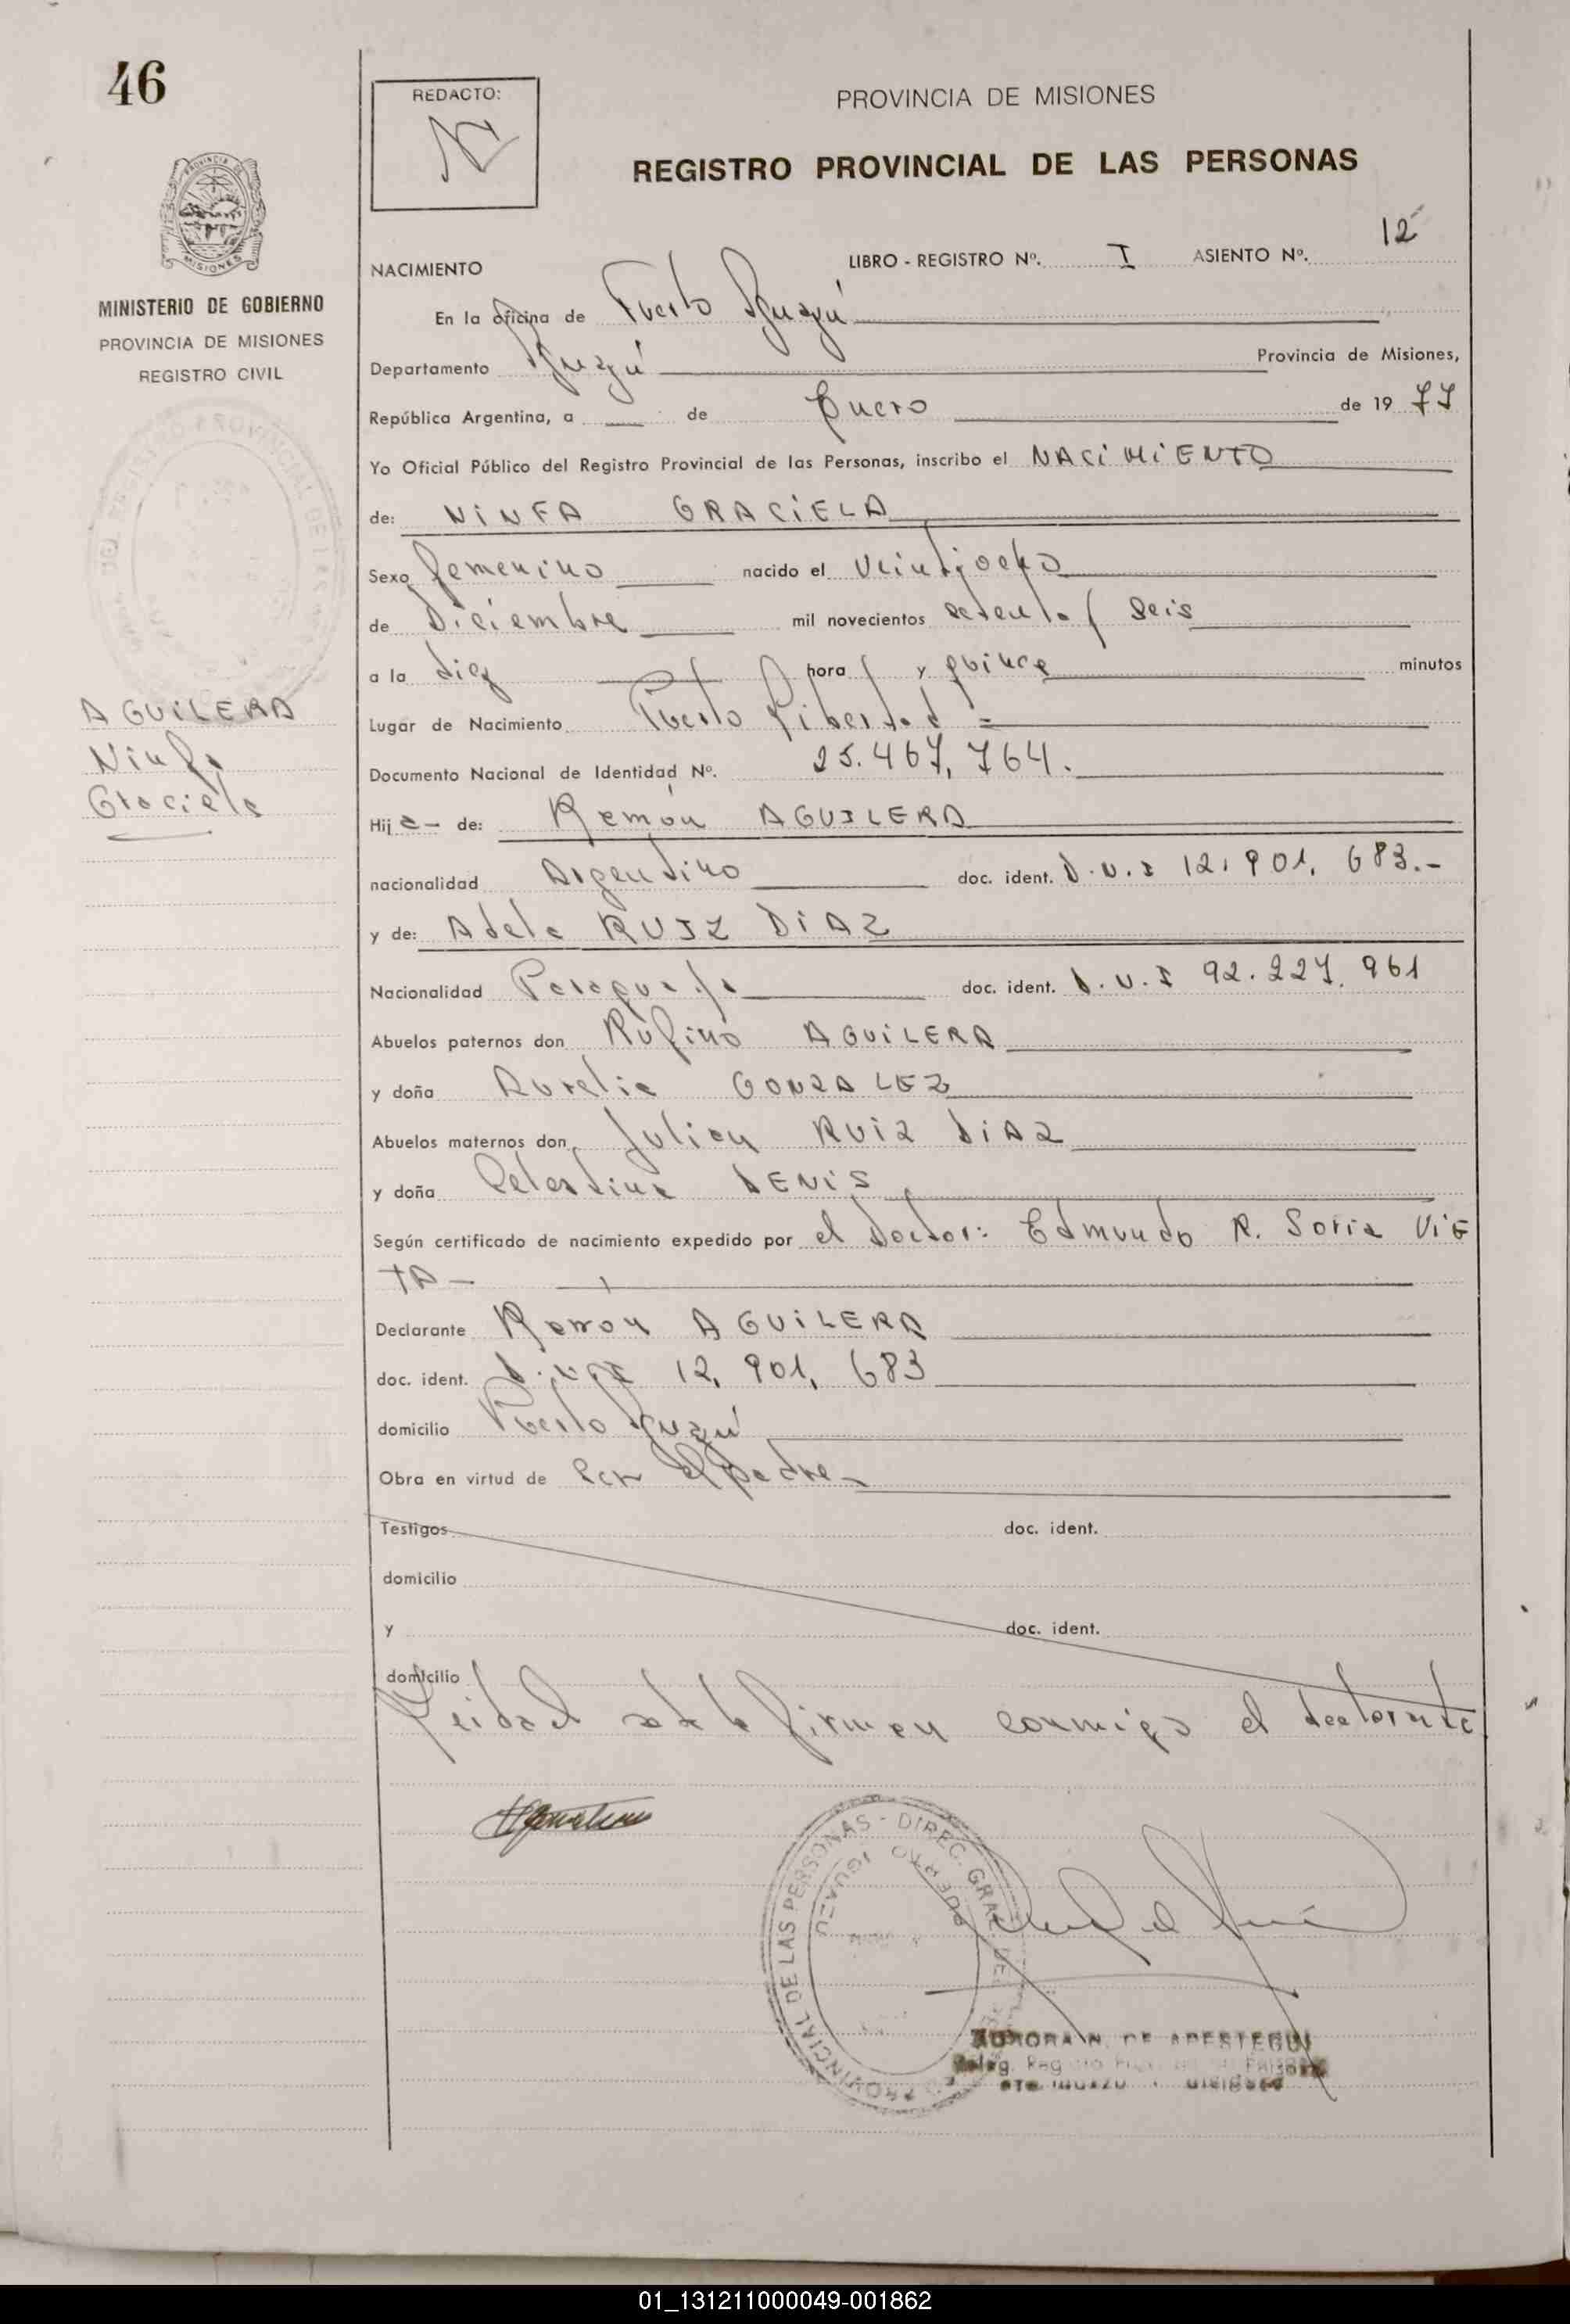 46
REDACTO:
PROVINCIA DE MISIONES
REGISTRO PROVINCIAL DE LAS PERSONAS
PROVINCIA DE
MISIONES
MINISTERIO DE GOBIERNO
PROVINCIA DE MISIONES
REGISTRO CIVIL
NACIMIENTO LIBRO - REGISTRO Nº. I ASIENTO Nº. 12
En la oficina de Puerto Iguazú
Departamento Iguazú Provincia de Misiones,
República Argentina, a de Enero de 1977
Yo Oficial Público del Registro Provincial de las Personas, inscribo el NACIMIENTO
de: NINFA GRACIELA
Sexo femenino nacido el veintiocho
de Diciembre mil novecientos setenta y seis
a la diez hora y quince minutos
AGUILERA
Ninfa
Graciela
Lugar de Nacimiento Puerto Libertad
Documento Nacional de Identidad Nº. 25.467.764.
Hija de: Ramón AGUILERA
nacionalidad Argentino doc. ident. D.N.I 12.901.683.-
y de: Adela RUIZ DIAZ
Nacionalidad Paraguaya doc. ident. D.N.I 92.227.961
Abuelos paternos don Rufino AGUILERA
y doña Aurelia GONZALEZ
Abuelos maternos don Julian RUIZ DIAZ
y doña Celestina DENIS
Según certificado de nacimiento expedido por el Doctor: Edmundo R. Soria VIE
TA-
Declarante Ramón AGUILERA
doc. ident. D.N.I 12.901.683
domicilio Puerto Iguazú
Obra en virtud de ser el padre
Testigos doc. ident.
domicilio
y doc. ident.
domicilio
Leida el acta firman conmigo el declarante
PROVINCIAL DE LAS PERSONAS - DIREC. GRAL. DEL
PUERTO IGUAZU
AURORA N. DE APESTEGUI
01_131211000049-001862